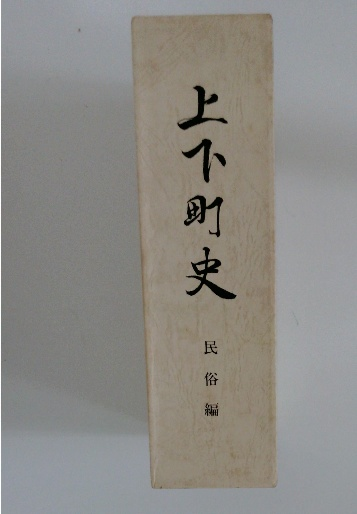 上下町史
民俗編